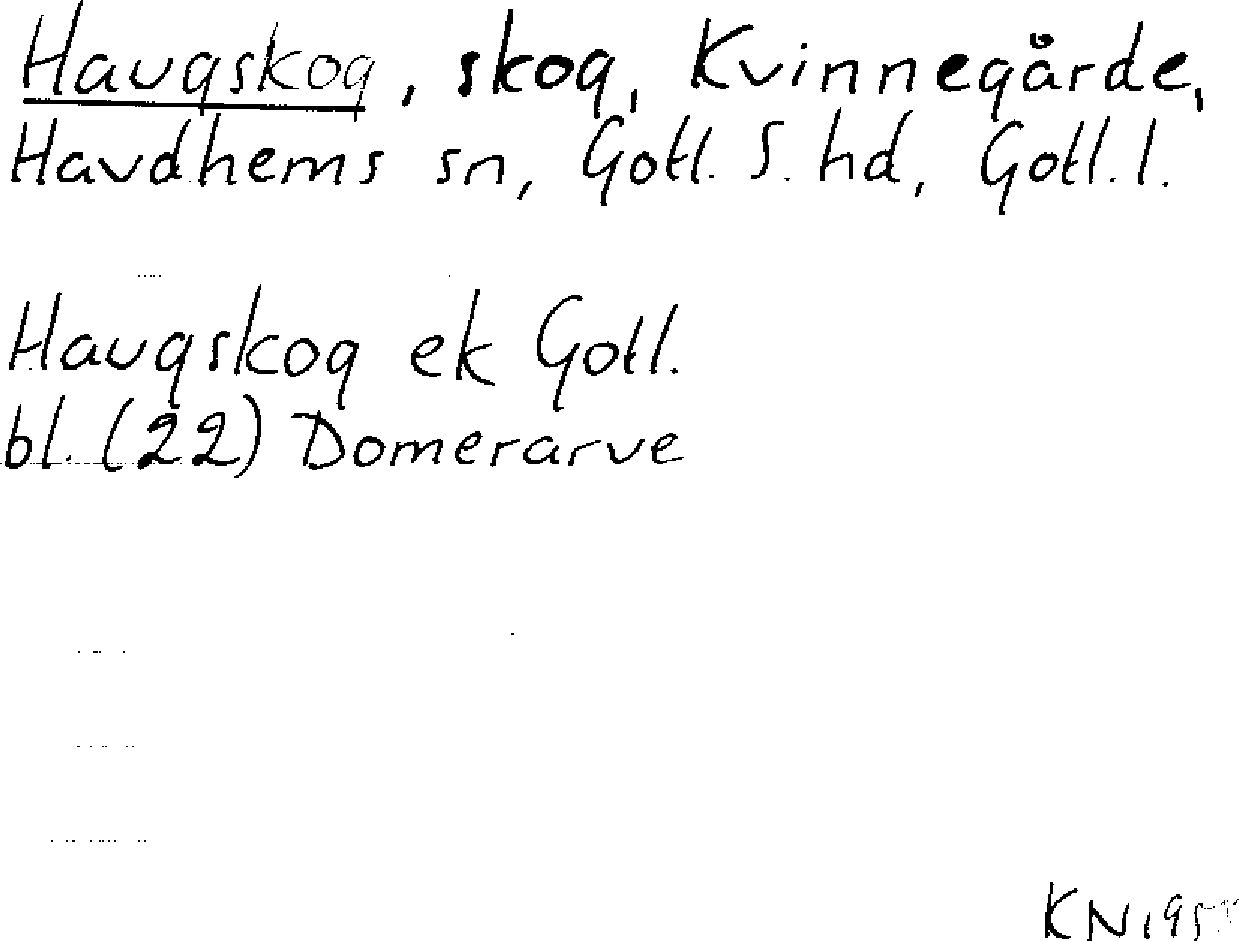 Haugskog, skog, Kvinnegårde,
Havdhems sn, Gotl. S. hd, Gotl. l.
Haugskog ek Gotl.
bl. (22) Domerarve
KN